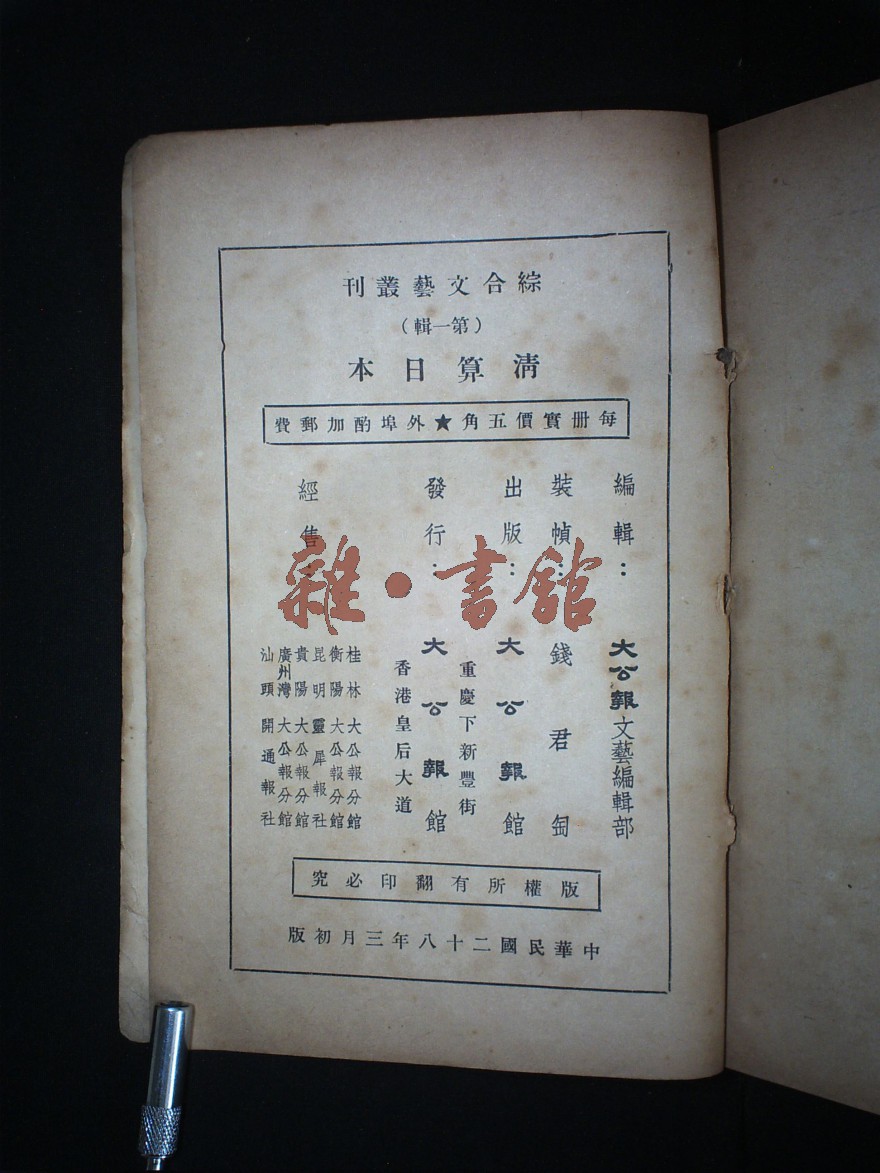 綜合文藝叢刊
（第一輯）
清算日本
每册實價五角★外埠酌加郵費
編輯：大公報文藝編輯部
裝幀：錢君匋
出版：大公報館
重慶下新豐街
發行：大公報館
香港皇后大道
經售
桂林 大公報分館
衡陽 大公報分館
昆明 靈犀報社
貴陽 大公報分館
廣州灣 大公報分館
汕頭 開通報社
版權所有翻印必究
中華民國二十八年三月初版
雜·書館